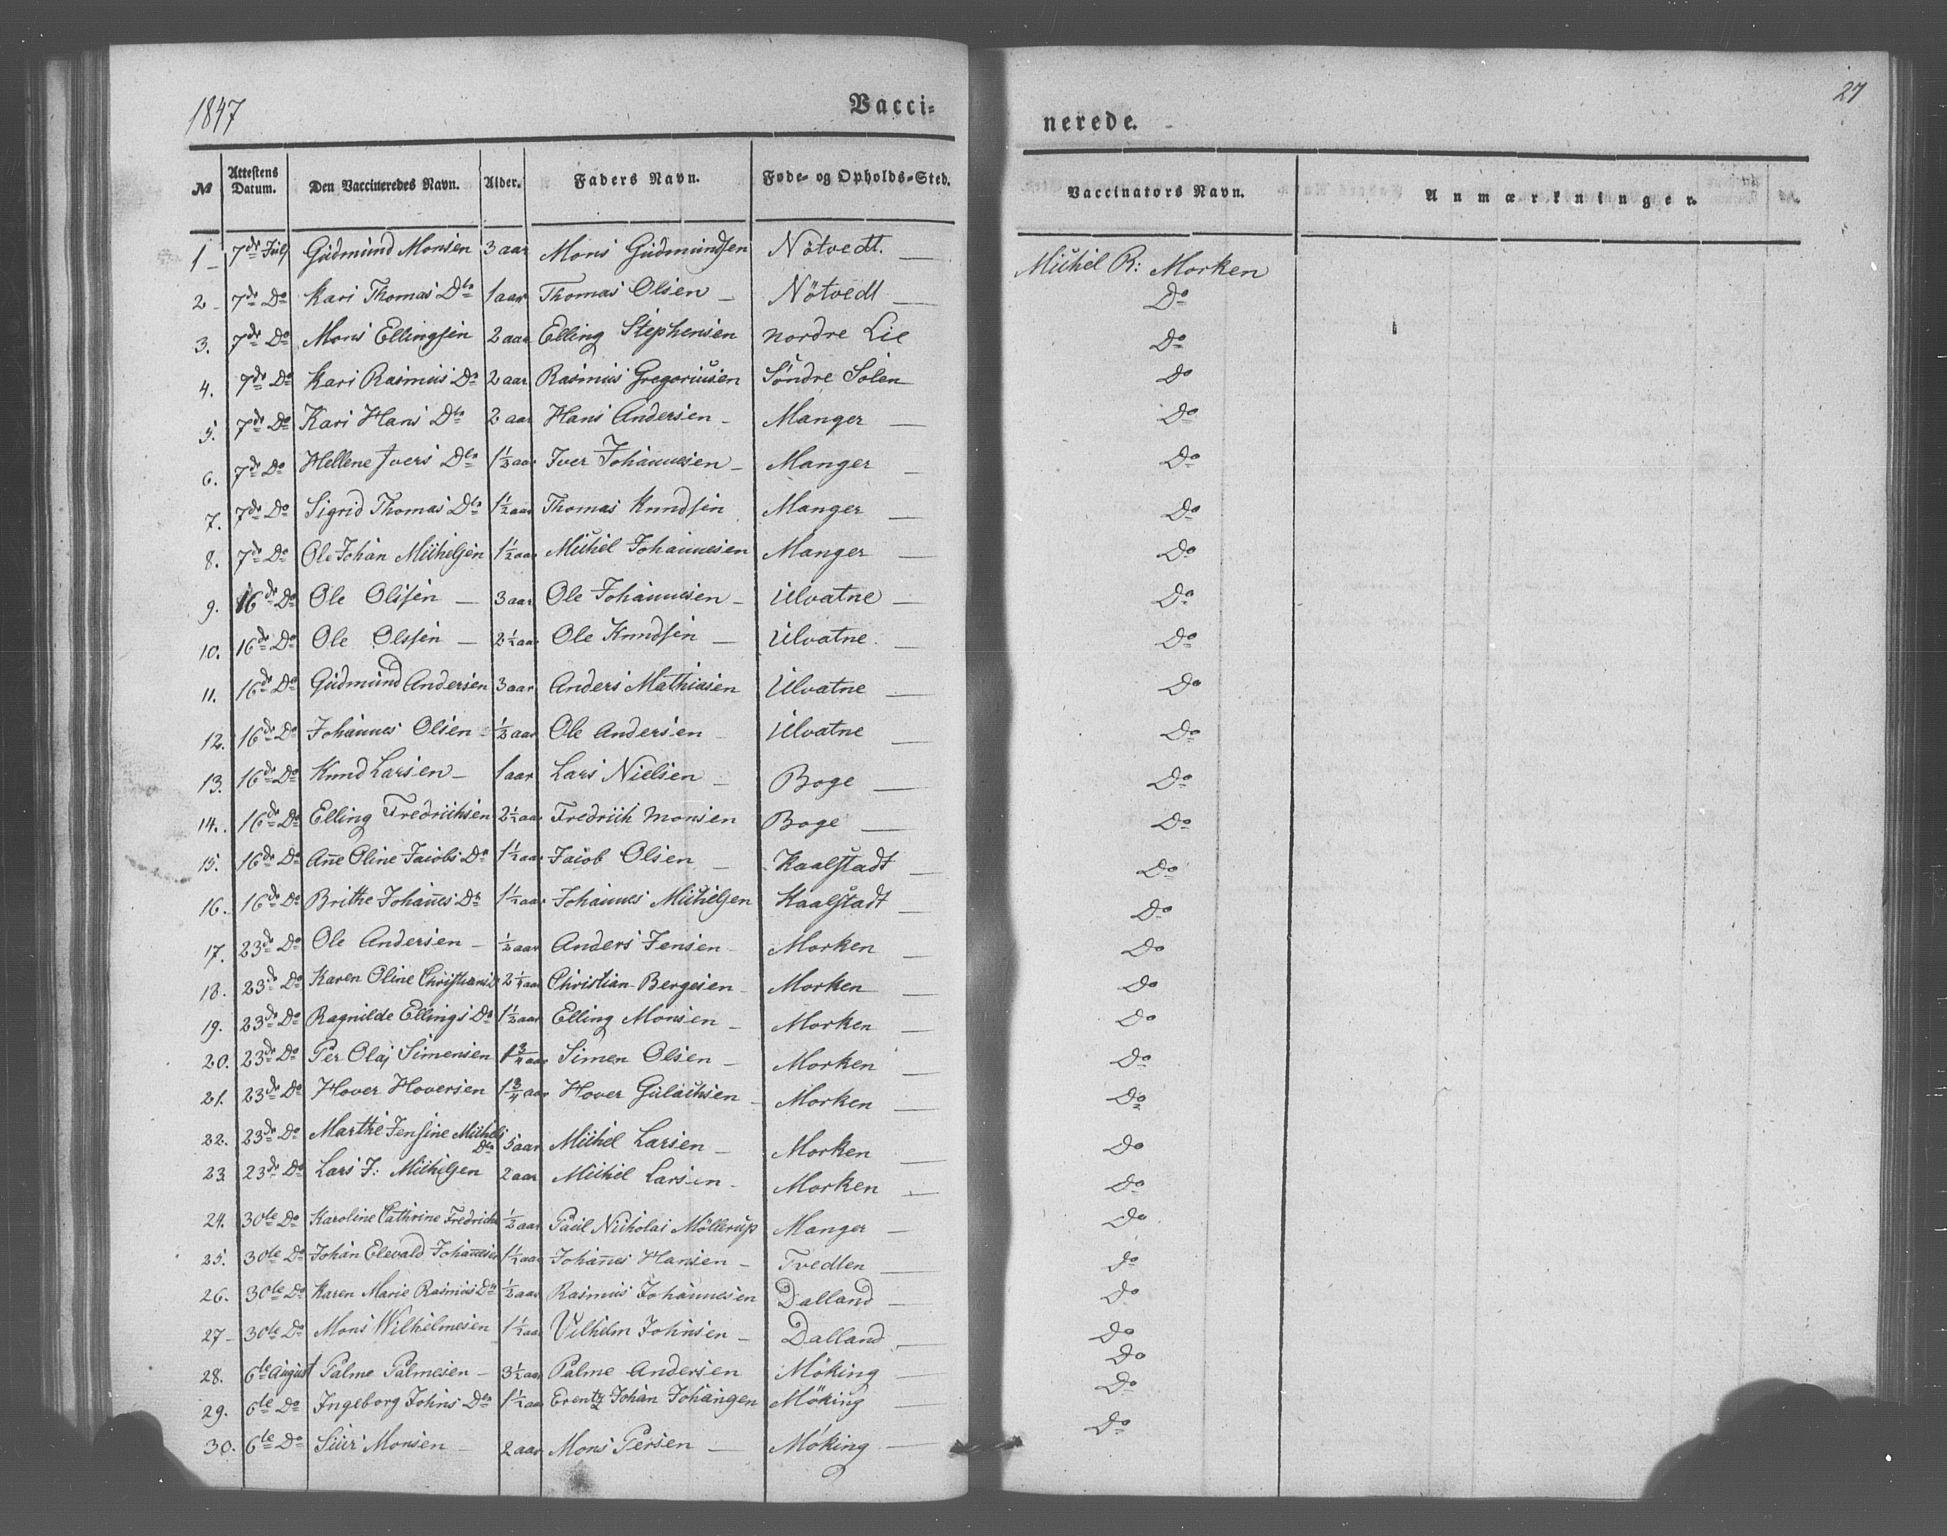 1847 Vacci=
nerede. 27
№ Attestens Datum. Den Vaccineredes Navn. Alder. Faders Navn. Føde- og Opholds-Sted. Vaccinators Navn. Anmærkninger.
1 7de Julj Gudmund Monsen 3 aar Mons Gudmundsen Nötvedt. Michel R: Morken
2 7de Do Kari Thomas Dtr 1 aar Thomas Olsen Nötvedt Do
3. 7de Do Mons Ellingsen 2 aar Elling Stephensen nordre Lie Do
4. 7de Do Kari Rasmus Dr 2 aar Rasmus Gregoriusen Söndre Solen Do
5. 7de Do Kari Hans Dtr 2 aar Hans Andersen Manger Do
6. 7de Do Hellene Ivers Dtr 1½ aar Iver Johannesen Manger Do
7. 7de Do Sigrid Thomas Dtr 1½ aar Thomas Knudsen Manger Do
8. 7de Do Ole Johan Michelsen 1½ aar Michel Johannesen Manger Do
9. 16de Do Ole Olssen 3 aar Ole Johannesen Ulvatne Do
10. 16de Do Ole Olssen 2½ aar Ole Knudsen Ulvatne. Do
11. 16de Do Gudmund Andersen 3 aar Anders Mathiasen Ulvatne Do
12. 16de Do Johannes Olsen ½ aar Ole Andersen Ulvatne Do
13. 16de Do Knud Larsen 1 aar Lars Nielsen Boge Do
14. 16de Do Elling Fredrichsen 2½ aar Fredrich Monsen Boge Do
15. 16de Do Añe Oline Jacobs Dr 1½ aar Jacob Olsen Kaalstadt Do
16. 16de Do Brithe Johañes Dr 1½ aar Johannes Michelsen Kaalstadt Do
17. 23de Do Ole Andersen ½ aar Anders Jensen Morken Do
18. 23de Do Karen Oline Christians D 2¼ aar Christian Bergesen Morken Do
19. 23de Do Ragnilde Ellings Dr 1½ aar Elling Monsen Morken Do
20. 23de Do Per Olaj Simensen 1¾ aar Simen Olsen Morken Do
21. 23de Do Hover Hoversen 1¾ aar Hover Gulachsen Morken Do
22. 23de Do Marthe Jensine Michels Dtr 5 aar Michel Larsen Morken Do
23. 23de Do Lars J: Michelsen 2 aar Michel Larsen Morken Do
24. 30te Do Karoline Cathrine Fredricke ½ aar Paul Nicholai Möllerup Manger Do
25. 30te Do Johan Elevald Johañesen 1½ aar Johañes Hansen Tvedten do
26. 30te Do Karen Marie Rasmus Dr ½ aar Rasmus Johannesen Dalland Do
27 30te Do Mons Wilhelmesen 1½ aar Vilhelm Johnsen Dalland Do
28. 6te August Palme Palmesen 3½ aar Palme Andersen Möking Do
29. 6te Do Ingeborg Johns Dtr 1½ aar Erentz Johan Johansen Möking Do
30. 6te Do Siur Monsen 2 aar Mons Persen Möking Do